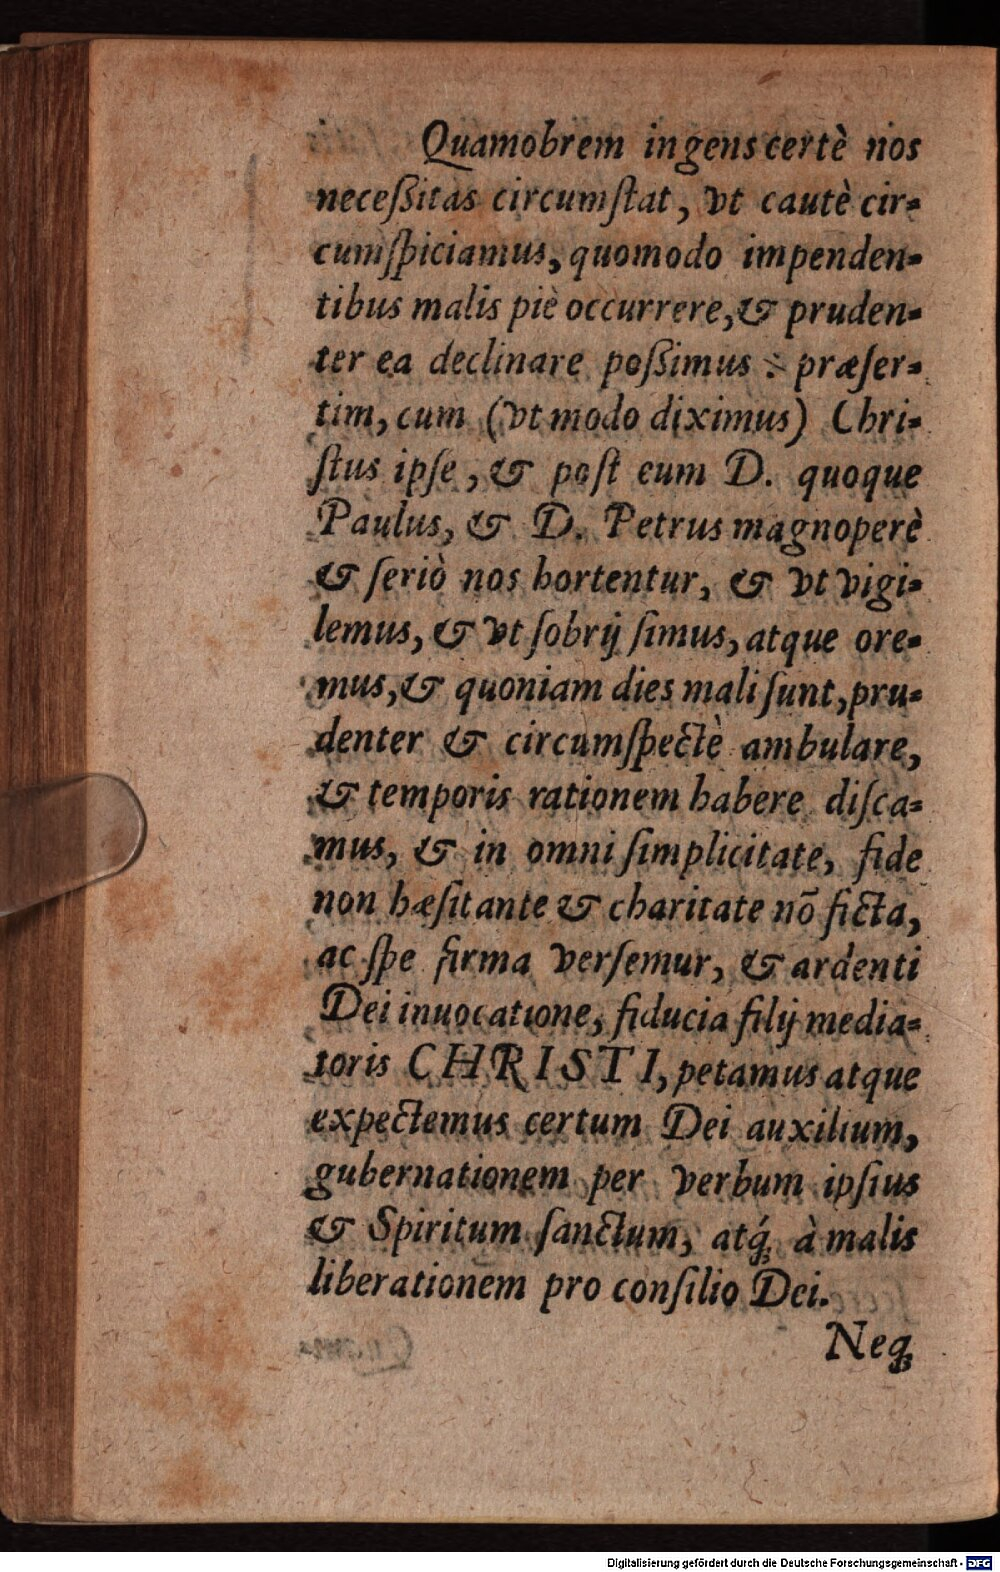 Quamobrem ingens certè nos
neceßitas circumſtat, vt cautè cir-
cumſpiciamus, quomodo impenden-
tibus malis piè occurrere, & pruden-
ter ea declinare poßimus: præſer-
tim, cum (vt modo diximus) Chri-
ſtus ipſe, & poſt eum D. quoque
Paulus, & D. Petrus magnoperè
& ſeriò nos hortentur, & vt vigi-
lemus, & vt ſobrij ſimus, atque ore-
mus, & quoniam dies mali ſunt, pru-
denter & circumſpectè ambulare,
& temporis rationem habere diſca-
mus, & in omni ſimplicitate, fide
non hæſitante & charitate nõ ficta,
ac ſpe firma verſemur, & ardenti
Dei inuocatione, fiducia filij media-
toris CHRISTI, petamus atque
expectemus certum Dei auxilium,
gubernationem per verbum ipſius
& Spiritum ſanctum, atq́; à malis
liberationem pro conſilio Dei.
Neq;
Digitalisierung gefördert durch die Deutsche Forschungsgemeinschaft - DFG